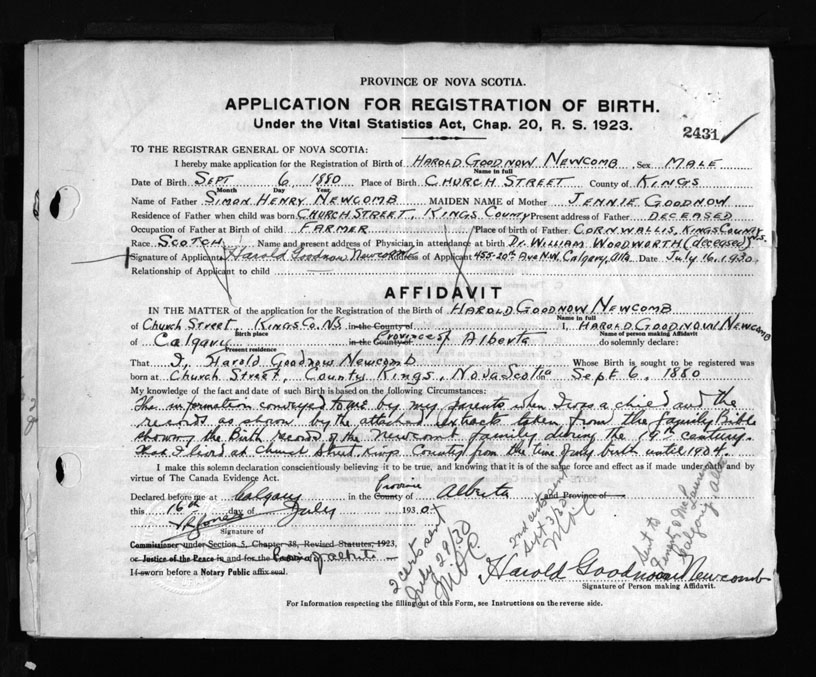 PROVINCE OF NOVA SCOTIA.
APPLICATION FOR REGISTRATION OF BIRTH.
Under the Vital Statistics Act, Chap. 20, R. S. 1923.
2431
TO THE REGISTRAR GENERAL OF NOVA SCOTIA:
I hereby make application for the Registration of Birth of HAROLD GOODNOW NEWCOMB Sex MALE
Name in full
Date of Birth SEPT 6 1880 Place of Birth CHURCH STREET County of KINGS
Month Day Year
Name of Father SIMON HENRY NEWCOMB MAIDEN NAME of Mother JENNIE GOODNOW
Residence of Father when child was born CHURCH STREET, KINGS COUNTY Present address of Father DECEASED
Occupation of Father at Birth of child FARMER Place of birth of Father CORNWALLIS, KINGS COUNTY N.S.
Race SCOTCH Name and present address of Physician in attendance at birth Dr. WILLIAM WOODWORTH (deceased)
Signature of Applicant Harold Goodnow Newcomb Address of Applicant 455-20th Ave N.W. Calgary, Alta Date July 16, 1930
Relationship of Applicant to child
AFFIDAVIT
IN THE MATTER of the application for the Registration of the Birth of HAROLD GOODNOW NEWCOMB
Name in full
of CHURCH STREET, KINGS CO. N.S. in the County of I, HAROLD GOODNOW NEWCOMB
Birth place Name of person making Affidavit
of Calgary in the County of Province of Alberta do solemnly declare:
Present residence
That I, Harold Goodnow Newcomb Whose Birth is sought to be registered was
born at Church Street, County Kings, Nova Scotia Sept 6, 1880
My knowledge of the fact and date of such Birth is based on the following Circumstances:
The information conveyed to me by my parents when I was a child and the
records as shown by the attached extract taken from the family Bible
showing the Birth records of the Newcomb family during the 19th century.
That I lived at Church Street, Kings County from the time of my birth until 1904.
I make this solemn declaration conscientiously believing it to be true, and knowing that it is of the same force and effect as if made under oath and by
virtue of The Canada Evidence Act.
Declared before me at Calgary in the County of Province Alberta and Province of
this 16th day of July 1930.
Signature
Commissioner under Section 5, Chapter 38, Revised Statutes, 1923,
or Justice of the Peace in and for the Province of Alberta
If sworn before a Notary Public affix seal.
2 certs sent
July 29/30
M.C.
2nd cert sent
Sept 3/30
M.C.
Sent to
Calgary Alta
Harold Goodnow Newcomb
Signature of Person making Affidavit.
For Information respecting the filling out of this Form, see Instructions on the reverse side.